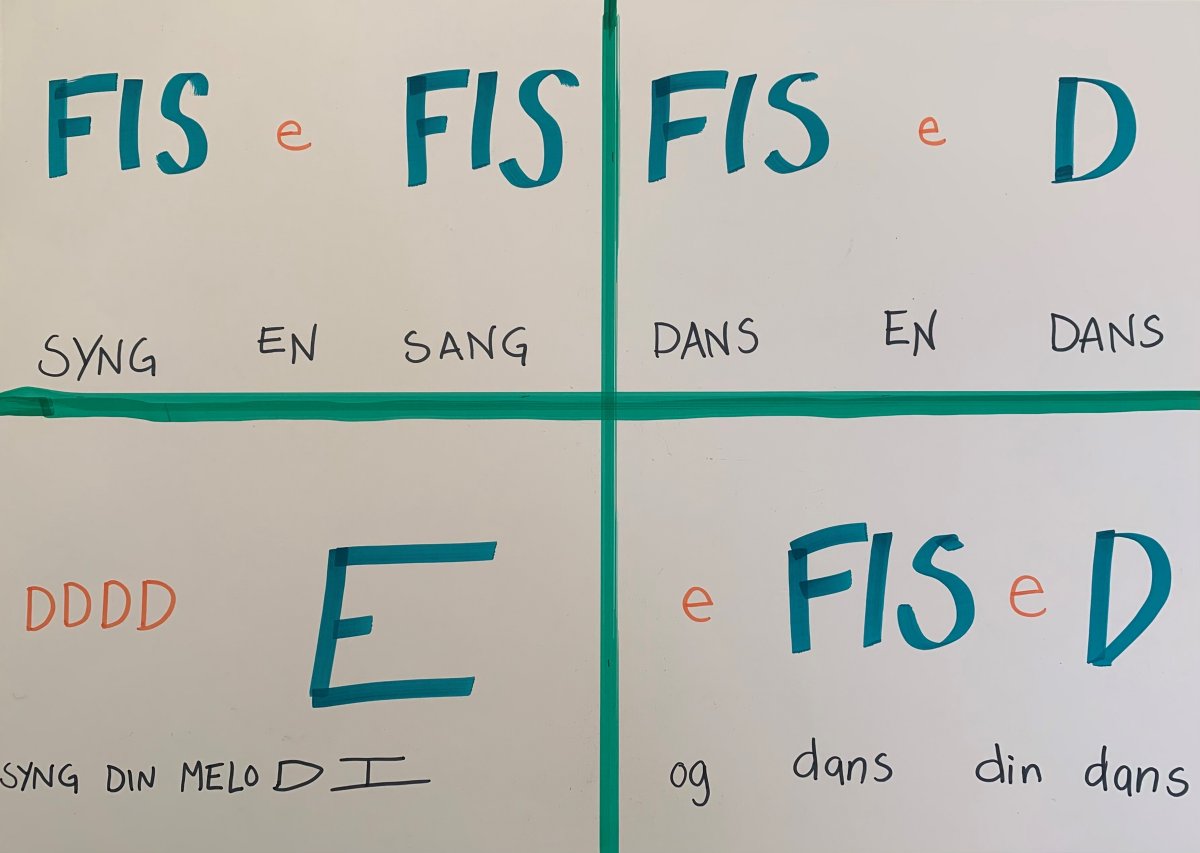 FIS e FIS
SYNG EN SANG
FIS e D
DANS EN DANS
DDDD E
SYNG DIN MELODI
e FIS e D
og dans din dans